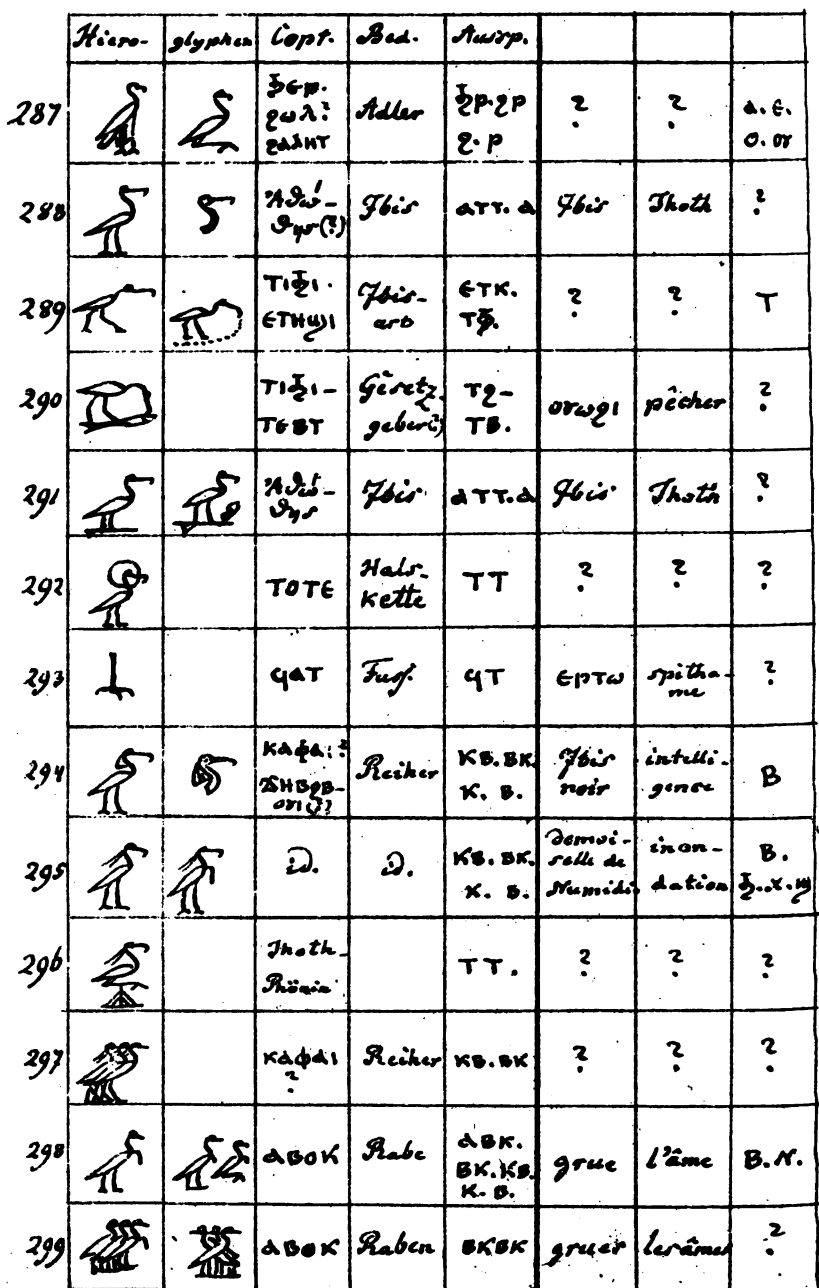 Hiero- glyphen Copt. Bed. Aussp.
287 ϩωλ? Adler ? ?
288 Ibis ⲁⲧⲧ.ⲁ Ibis Thoth ?
289 ⲉⲧⲏϣⲓ Ibis- art ⲉⲧⲕ. ? ? ⲧ
290 ⲧⲉⲃⲧ Gesetz- geber(?) ⲧϩ- ⲧⲃ. ⲟⲩⲱϩⲓ pêcher ?
291 Ibis ⲁⲧⲧ.ⲁ Ibis Thoth ?
292 ⲧⲟⲧⲉ Hals- kette ⲧⲧ ? ? ?
293 ϥⲁⲧ Fuß. ϥⲧ ⲉⲣⲧⲱ spitha- me ?
294 ⲕⲁⲫⲁⲓ? Reiher ⲕⲃ.ⲃⲕ. ⲕ. ⲃ. Ibis noir intelli- gence B
295 id. id. ⲕⲃ.ⲃⲕ. ⲕ. ⲃ. demoi- selle de Numidie inon- dation B.
296 Thoth- Phönix ⲧⲧ. ? ? ?
297 ⲕⲁⲫⲁⲓ ? Reiher ⲕⲃ.ⲃⲕ ? ? ?
298 ⲁⲃⲟⲕ Rabe ⲁⲃⲕ. ⲃⲕ.ⲕⲃ. ⲕ. ⲃ. grue l'âme B.N.
299 ⲁⲃⲟⲕ Raben ⲃⲕⲃⲕ grues les âmes ?